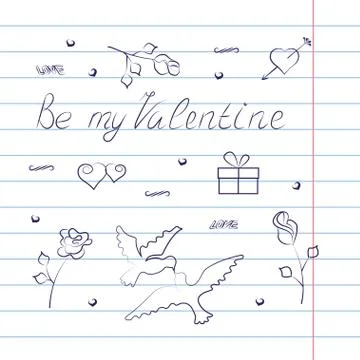 LOVE
Be my Valentine
LOVE